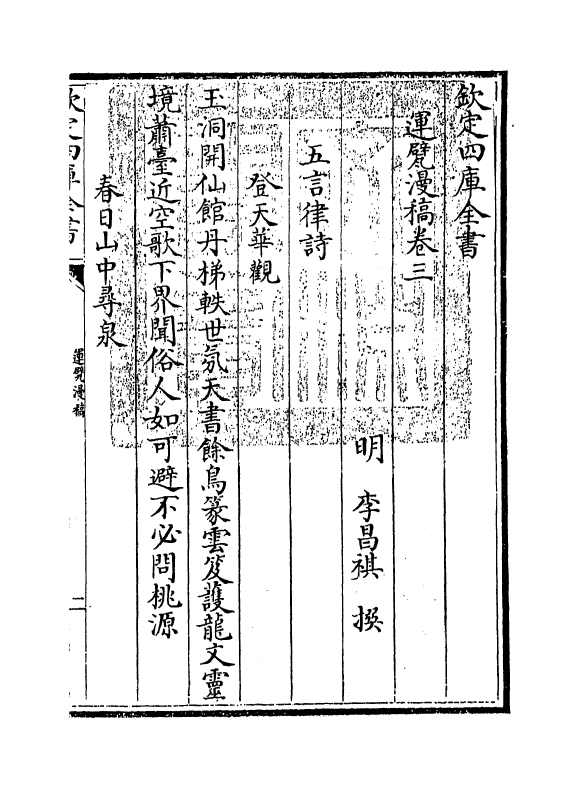 欽定四庫全書
運甓漫稿卷三
明 李昌祺 撰
五言律詩
登天華觀
玉洞開仙館丹梯軼世氛天書餘鳥篆雲笈護龍文靈
境蕭臺近空歌下界聞俗人如可避不必問桃源
春日山中尋泉
欽定四庫全書
運甓漫稿
二